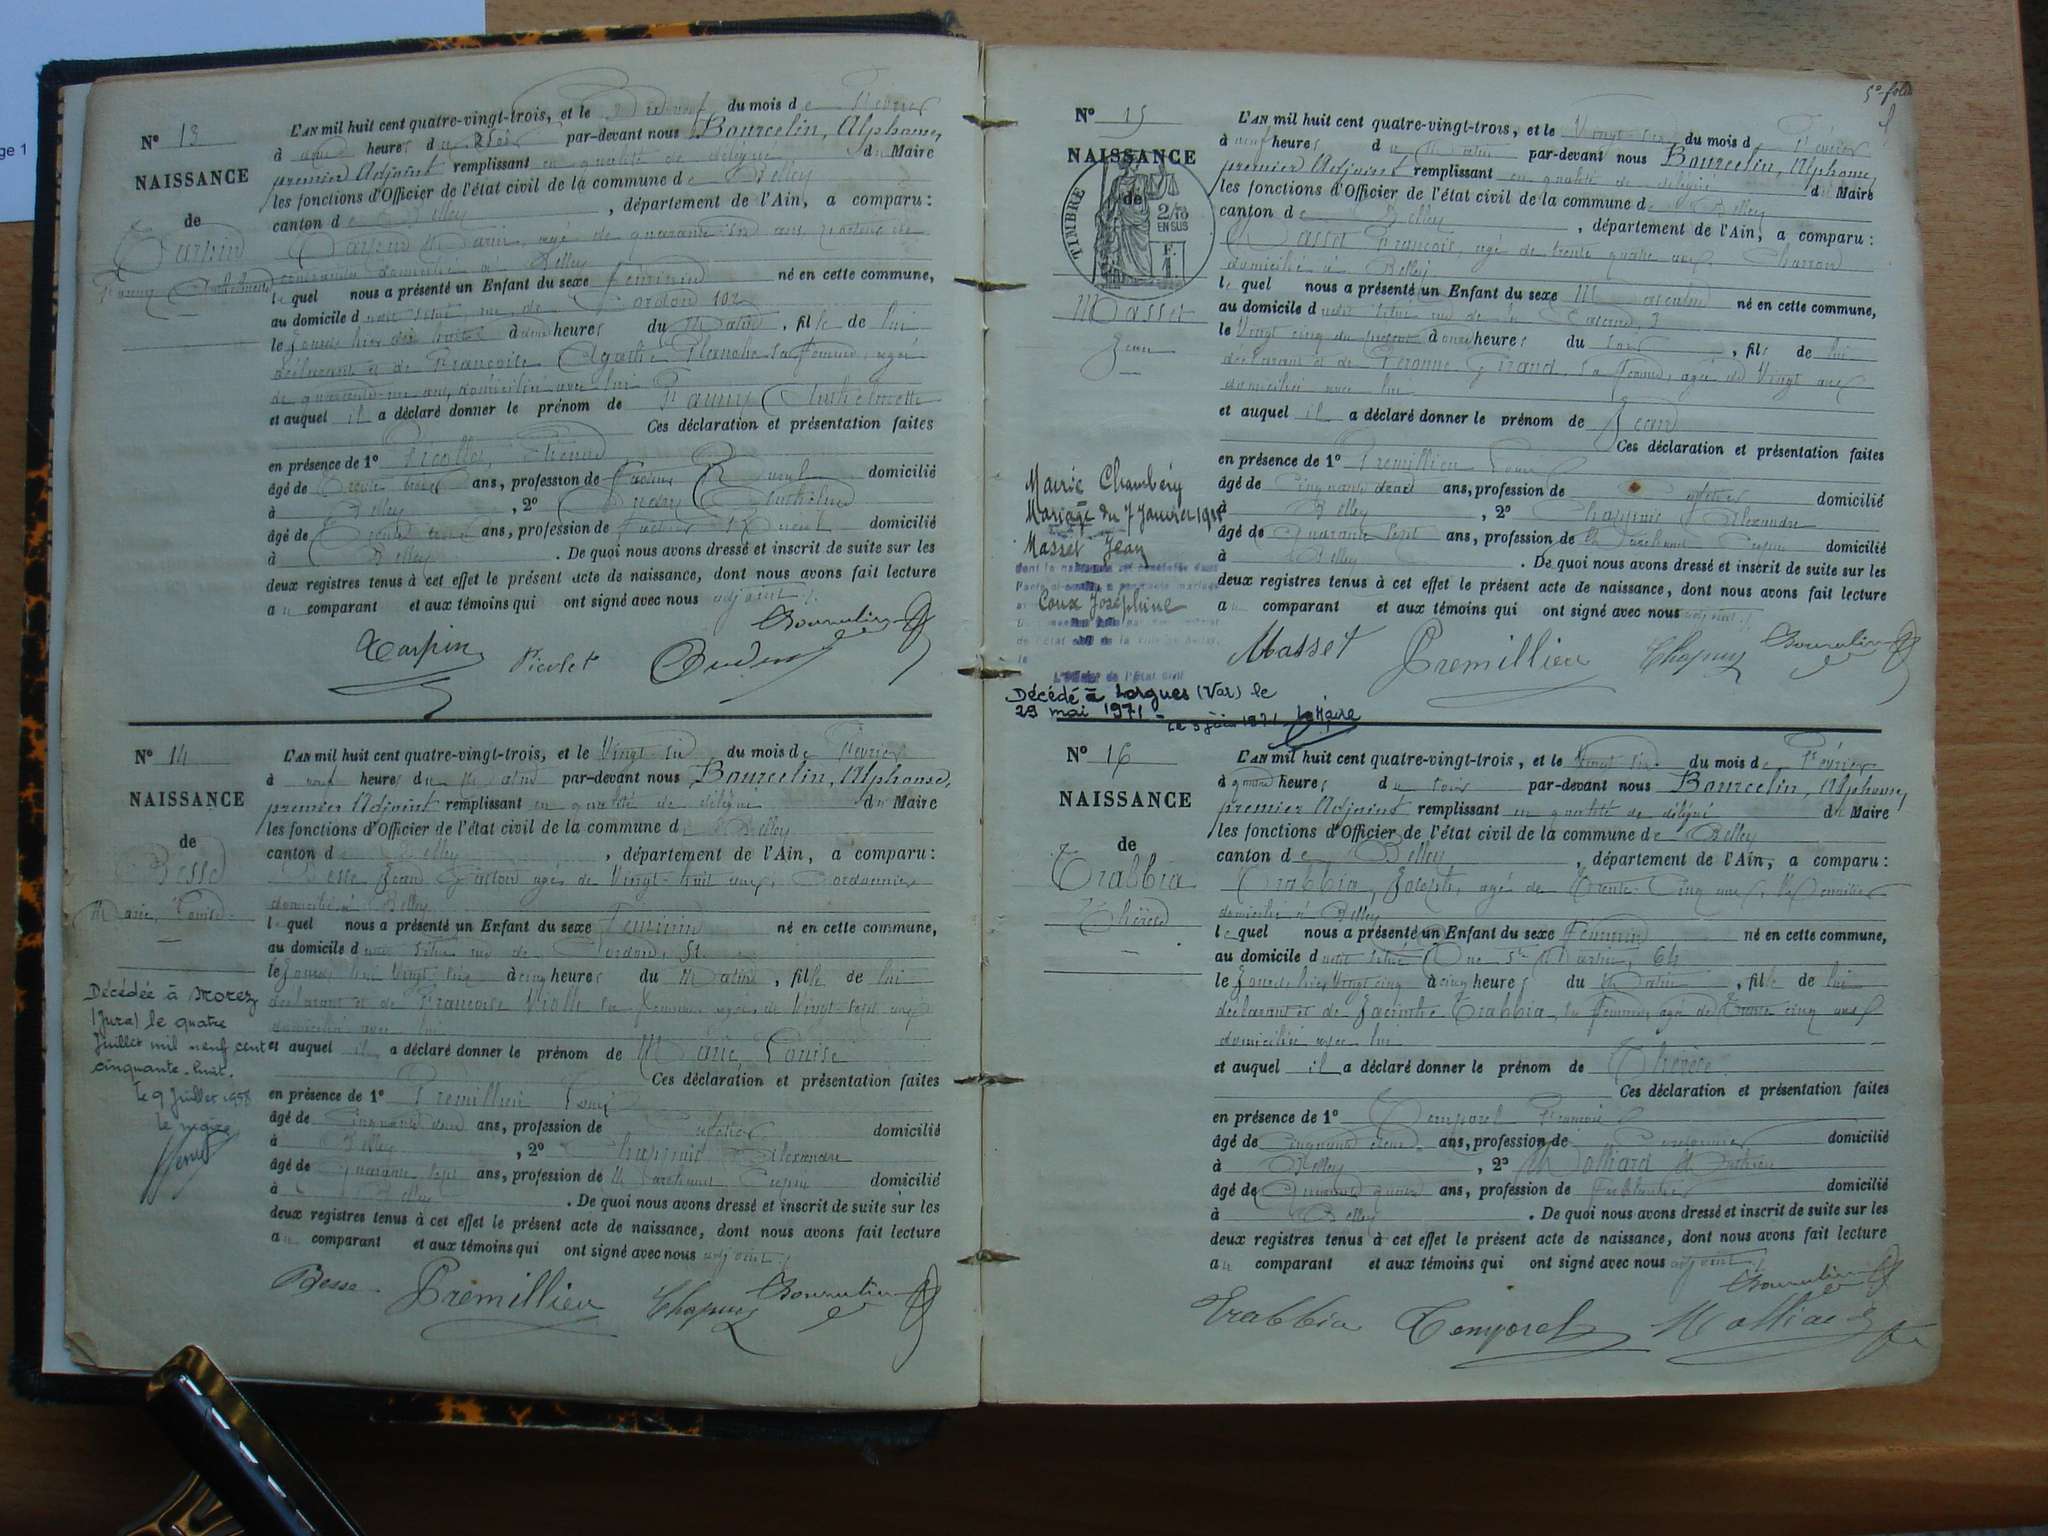 ge 1
N° 13
NAISSANCE
de
Tarpin
L'AN mil huit cent quatre-vingt-trois, et le du mois de Février
à heures du par-devant nous Bourcelin, Alphonse,
premier Adjoint remplissant en qualité de délégué du Maire
les fonctions d'Officier de l'état civil de la commune de Belley
canton de Belley, département de l'Ain, a comparu :
Tarpin Marie, agé de quarante six ans,
domicilié à Belley
lequel nous a présenté un Enfant du sexe féminin né en cette commune,
au domicile d rue de Cordon 102
le à heures du Matin, fille de lui
déclarant et de Françoise Agathe Planche sa femme, agée
de ans, domiciliée avec lui
et auquel il a déclaré donner le prénom de Fanny Anthelmette
Ces déclaration et présentation faites
en présence de 1°
âgé de Trente ans, profession de facteur domicilié
à Belley, 2° Anthelme
âgé de Trente ans, profession de facteur domicilié
à Belley. De quoi nous avons dressé et inscrit de suite sur les
deux registres tenus à cet effet le présent acte de naissance, dont nous avons fait lecture
au comparant et aux témoins qui ont signé avec nous adjoint
Tarpin Picolet
N° 14
NAISSANCE
de
Besse
Marie, Louise
Décédée à Morez
(Jura) le quatre
Juillet mil neuf cent
cinquante-huit.
le 9 Juillet 1958
le maire
L'AN mil huit cent quatre-vingt-trois, et le Vingt-six du mois de Février
à neuf heures du Matin par-devant nous Bourcelin, Alphonse,
premier Adjoint remplissant en qualité de délégué du Maire
les fonctions d'Officier de l'état civil de la commune de Belley
canton de Belley, département de l'Ain, a comparu :
Besse Jean agé de Vingt-huit ans, Cordonnier
domicilié à Belley
lequel nous a présenté un Enfant du sexe féminin né en cette commune,
au domicile d rue de Cordon, 51
le à cinq heures du Matin, fille de lui
déclarant et de Françoise sa femme, agée de Vingt-sept ans
domiciliée avec lui
et auquel il a déclaré donner le prénom de Marie Louise
Ces déclaration et présentation faites
en présence de 1° Premillieu Louis
âgé de Cinquante deux ans, profession de domicilié
à Belley, 2° Chapuis Alexandre
âgé de Quarante sept ans, profession de Marchand domicilié
à Belley. De quoi nous avons dressé et inscrit de suite sur les
deux registres tenus à cet effet le présent acte de naissance, dont nous avons fait lecture
au comparant et aux témoins qui ont signé avec nous adjoint
Besse Premillieu Chapuis
5e folio
N° 15
NAISSANCE
de
TIMBRE
2/10
EN SUS
F.
1.
Masset
Jean
Mairie Chambéry
Mariage du 7 Janvier
Masset Jean
Coux Joséphine
L'Officier de l'État Civil
Décédé à Lorgues (Var) le
29 mai 1971
le 3 juin 1971 Le Maire
L'AN mil huit cent quatre-vingt-trois, et le Vingt-six du mois de Février
à neuf heures du Matin par-devant nous Bourcelin, Alphonse,
premier Adjoint remplissant en qualité de délégué du Maire
les fonctions d'Officier de l'état civil de la commune de Belley
canton de Belley, département de l'Ain, a comparu :
Masset François, agé de trente quatre ans, Charron
domicilié à Belley
lequel nous a présenté un Enfant du sexe Masculin né en cette commune,
au domicile d rue de la 3
le Vingt cinq du présent à onze heures du soir, fils de lui
déclarant et de Péronne Girand sa femme, agée de Vingt ans
domiciliée avec lui
et auquel il a déclaré donner le prénom de Jean
Ces déclaration et présentation faites
en présence de 1° Premillieu Louis
âgé de Cinquante deux ans, profession de domicilié
à Belley, 2° Chapuis Alexandre
âgé de Quarante sept ans, profession de Marchand domicilié
à Belley. De quoi nous avons dressé et inscrit de suite sur les
deux registres tenus à cet effet le présent acte de naissance, dont nous avons fait lecture
au comparant et aux témoins qui ont signé avec nous adjoint
Masset Premillieu Chapuis
N° 16
NAISSANCE
de
Trabbia
Thérèse
L'AN mil huit cent quatre-vingt-trois, et le Vingt six du mois de Février
à quatre heures du soir par-devant nous Bourcelin, Alphonse,
premier Adjoint remplissant en qualité de délégué du Maire
les fonctions d'Officier de l'état civil de la commune de Belley
canton de Belley, département de l'Ain, a comparu :
Trabbia, Joseph, agé de Trente-Cinq ans,
domicilié à Belley
lequel nous a présenté un Enfant du sexe féminin né en cette commune,
au domicile d Rue St Martin, 64
le Vingt cinq à cinq heures du Matin, fille de lui
déclarant et de Jacinthe Trabbia, sa femme, agée de Trente cinq ans
domiciliée avec lui
et auquel il a déclaré donner le prénom de Thérèse
Ces déclaration et présentation faites
en présence de 1° Temporel François
âgé de Cinquante ans, profession de Cordonnier domicilié
à Belley, 2° Molliard
âgé de ans, profession de Ferblantier domicilié
à Belley. De quoi nous avons dressé et inscrit de suite sur les
deux registres tenus à cet effet le présent acte de naissance, dont nous avons fait lecture
au comparant et aux témoins qui ont signé avec nous adjoint
Trabbia Temporel Molliard